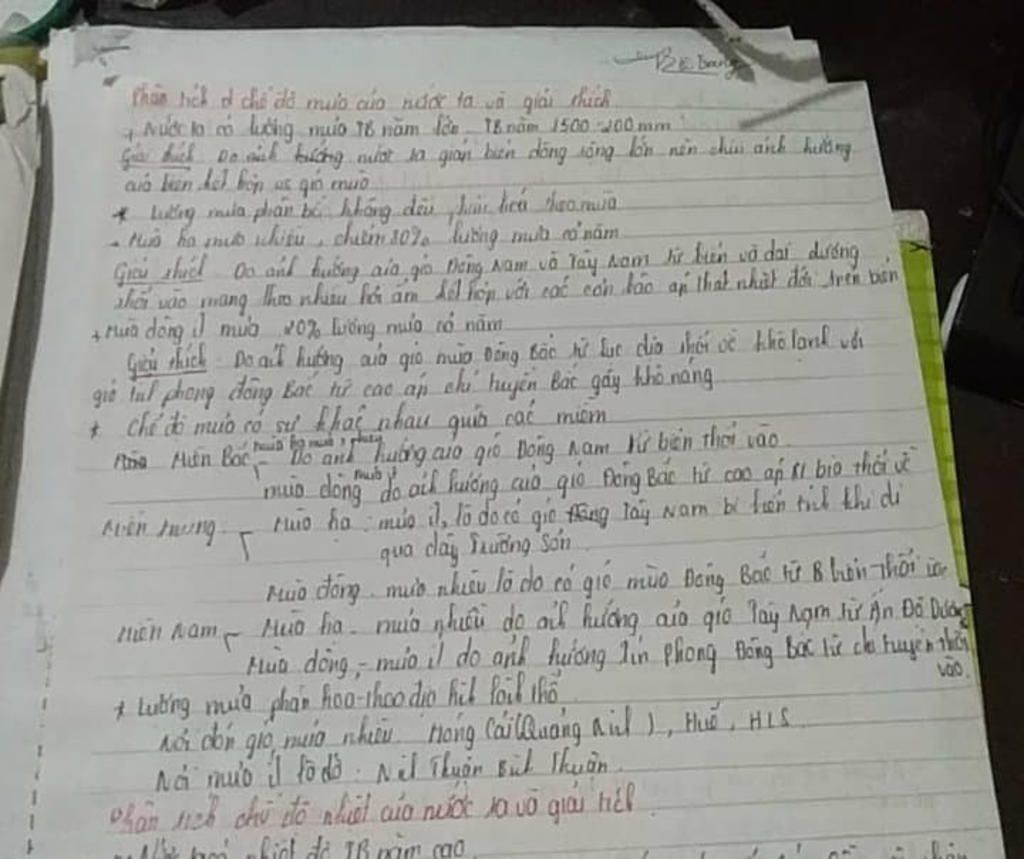 Phân tích chế độ mưa của nước ta và giải thích
+ Nước ta có lượng mưa TB năm lớn. TB năm 1500-200 mm
Giải thích Do ảnh hưởng nước ta giáp biển đông rộng lớn nên chịu ảnh hưởng
của biển kết hợp vs gió mùa
* Lượng mưa phân bố không đều, phân hoá theo mùa
- Mùa hạ mưa nhiều, chiếm 80% lượng mưa cả năm
Giải thích Do ảnh hưởng của gió Đông Nam và Tây Nam từ biển và đại dương
thổi vào mang theo nhiều hơi ẩm kết hợp với các cơn bão áp thất nhiệt đới trên biển
+ Mùa đông ít mưa 20% lượng mưa cả năm
Giải thích Do ảh hưởng của gió mùa Đông Bắc từ lục địa thổi về khô lạnh với
gió tín phong đông Bắc từ cao áp chí tuyến Bắc gây khô nóng
* Chế độ mưa có sự khác nhau giữa các miền
Miền Bắc - mùa hạ mưa nhiều Do ảnh hưởng của gió Đông Nam từ biển thổi vào
mùa đông mưa ít do ảh hưởng của gió Đông Bắc từ cao áp xi bia thổi về
Miền trung - Mùa hạ: mưa ít, là do có gió Tây Nam bị biến tính khi đi
qua dãy Trường Sơn
Mùa đông mưa nhiều là do có gió mùa Đông Bắc từ B biển thổi vào
Miền Nam - Mùa hạ - mưa nhiều do ảh hưởng của gió Tây Nam từ Ấn Độ Dương
Mùa đông, - mưa ít do ảnh hưởng Tín Phong Đông Bắc từ chí tuyến thổi
vào.
* Lượng mưa phân hoá theo địa hìh lãnh thổ
Nơi đón gió, mưa nhiều Móng Cái (Quảng Nih), Huế, HLS
Nơi mưa ít là do: Nih Thuận Bìh Thuận
Phân tích chế độ nhiệt của nước ta và giải thích
nhiệt độ TB năm cao